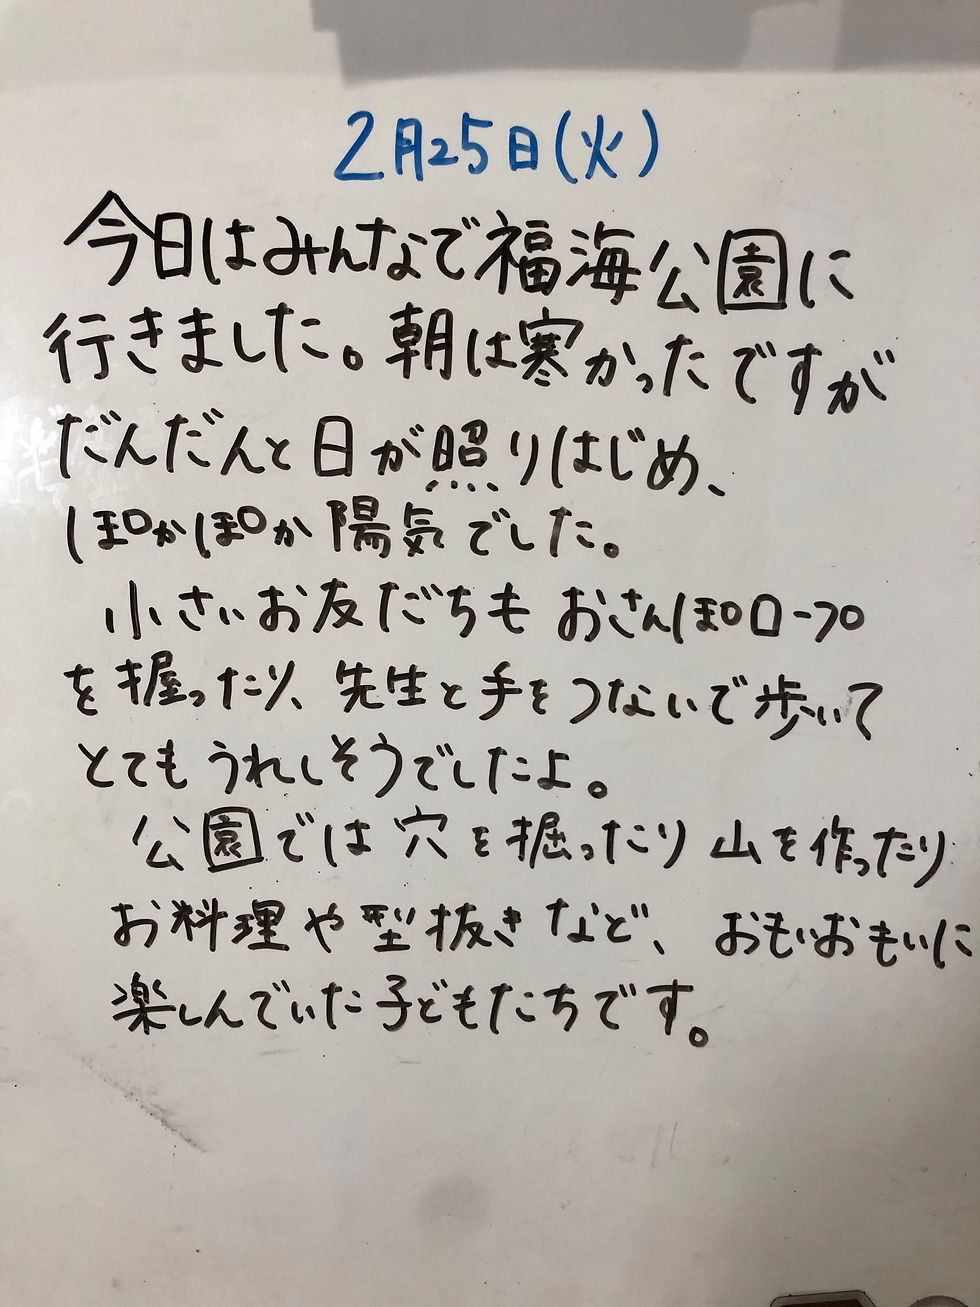 2月25日(火)
今日はみんなで福海公園に
行きました。朝は寒かったですが
だんだんと日が照りはじめ、
ぽかぽか陽気でした。
小さいお友だちもおさんぽロープ
を握ったり、先生と手をつないで歩いて
とてもうれしそうでしたよ。
公園では穴を掘ったり山を作ったり
お料理や型抜きなど、おもいおもいに
楽しんでいた子どもたちです。